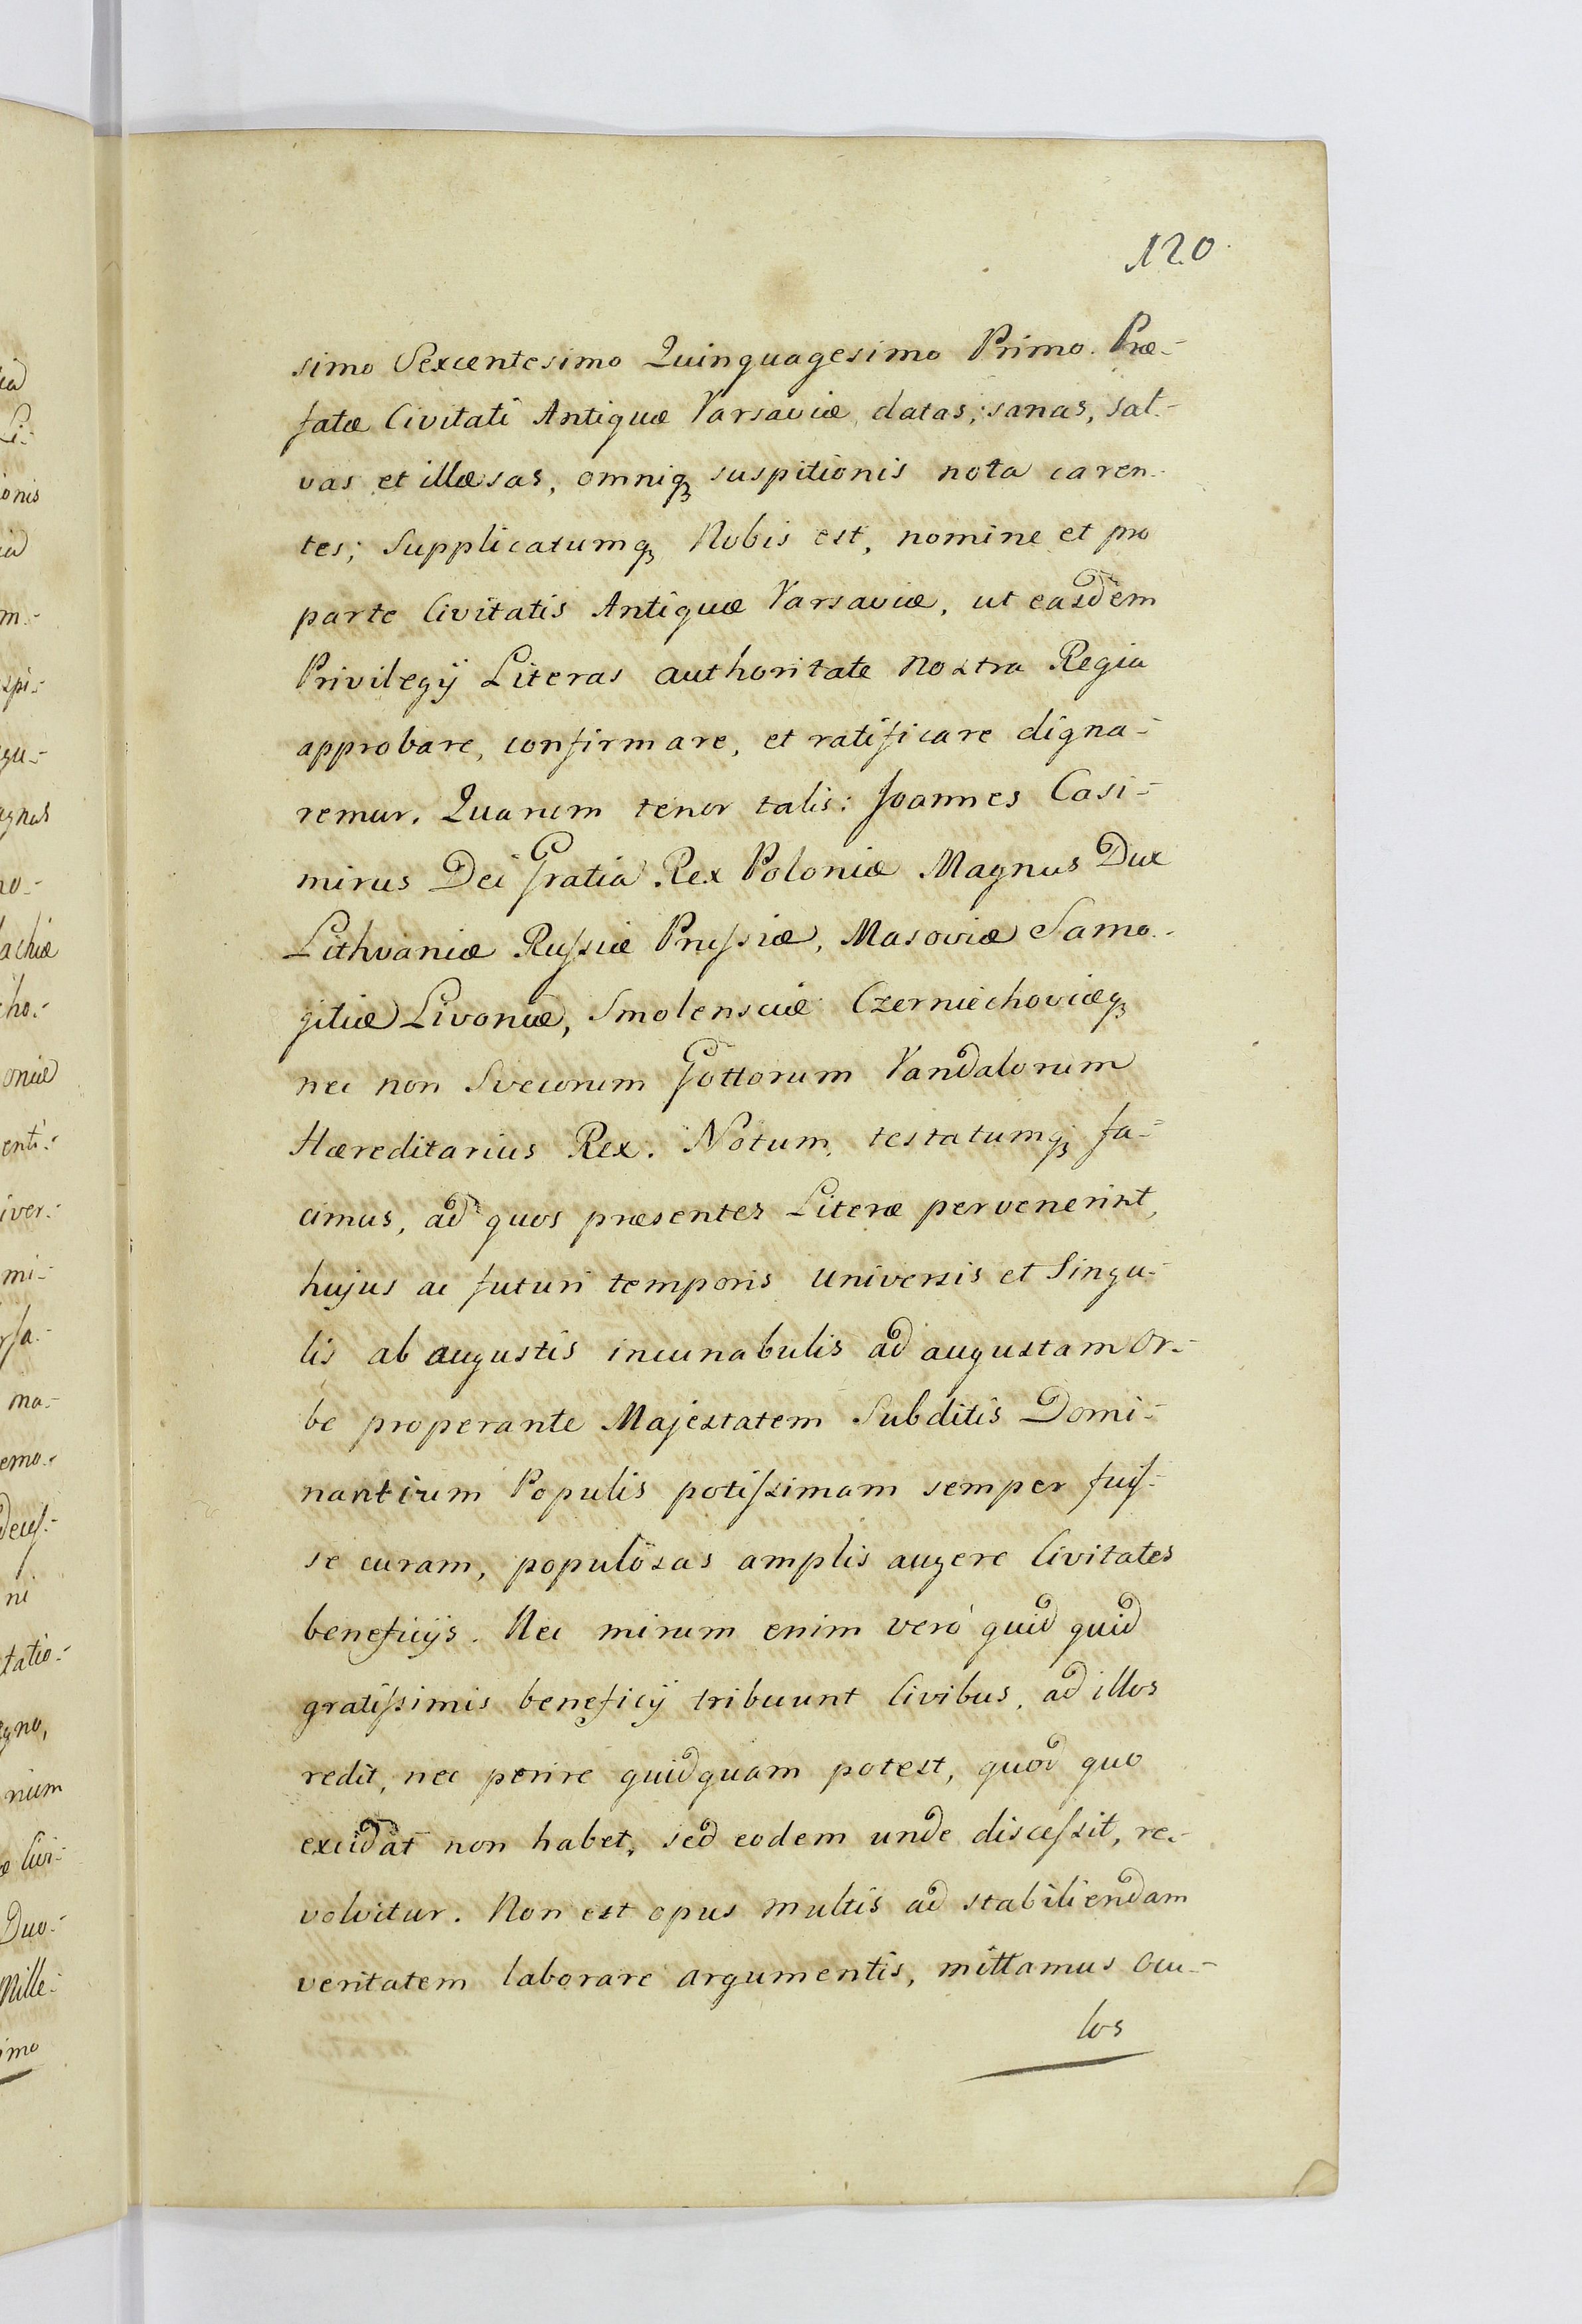 120
simo Sexcentesimo Quinquagesimo Primo. Præ-
fatæ Civitati Antiquæ Varsaviæ, datas, sanas, sal-
vas et illæsas, omniq₃ suspitionis nota caren-
tes; Supplicatumq₃ Nobis est, nomine et pro
parte Civitatis Antiquæ Varsaviæ, ut easdem
Privilegÿ Literas authoritate nostra Regia
approbare, confirmare, et ratificare digna-
remur. Quarum tenor talis: Joannes Casi-
mirus Dei Gratia Rex Poloniæ Magnus Dux
Lithvaniæ Rusſiæ Prusſiæ, Masoviæ Samo-
gitiæ Livoniæ, Smolensciæ Czerniechoviæq₃
nec non Svecorum Gottorum Vandalorum
Hæreditarius Rex. Notum, testatumq₃ fa-
cimus, ad quos præsentes Literæ pervenerint,
hujus ac futuri temporis universis et Singu-
lis ab augustis incunabulis ad augustam or-
be properante Majestatem Subditis Domi-
nantium Populis potiſsimam semper fuiſ-
se curam, populosas amplis augere Civitates
beneficÿs. Nec mirum enim verò quid quid
gratiſsimis beneficÿ tribuunt Civibus, ad illos
redit, nec perire quidquam potest, quod quo
excidat non habet, sed eodem unde disceſsit, re-
volvitur. Non est opus multis ad stabiliendam
veritatem laborare argumentis, mittamus ocu-
los